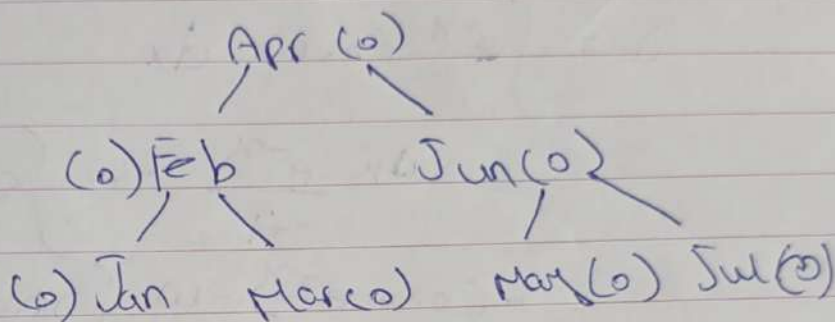 Apr (0)
(0) Feb Jun (0)
(0) Jan Mar (0) May (0) Jul (0)